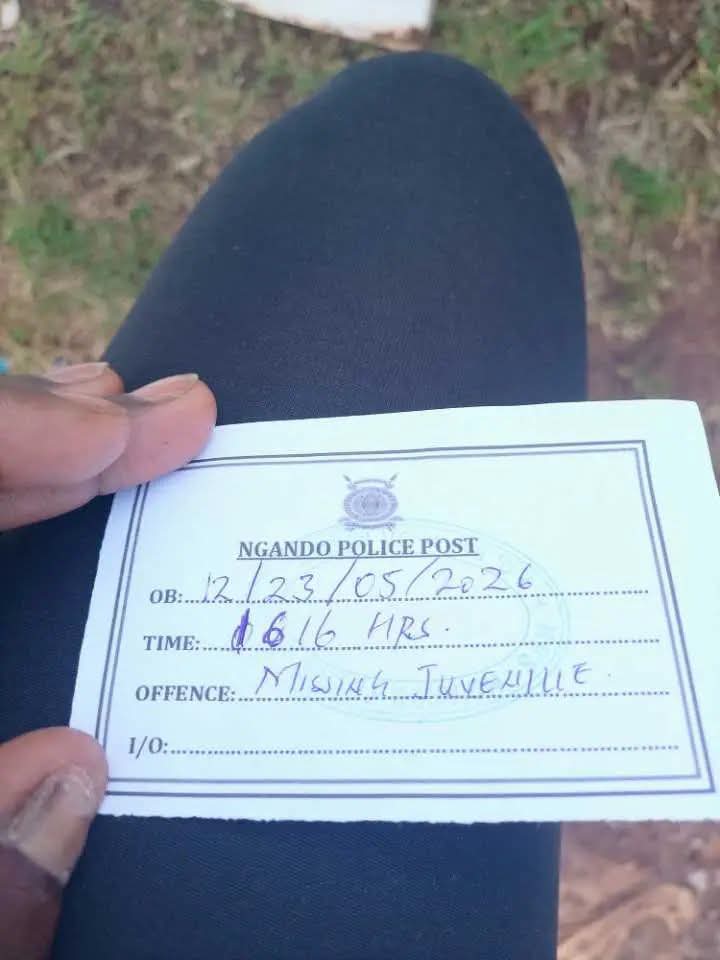 NGANDO POLICE POST
OB: 12/23/05/2026
TIME: 1616 HRS.
OFFENCE: MISSING JUVENILE.
I/O: